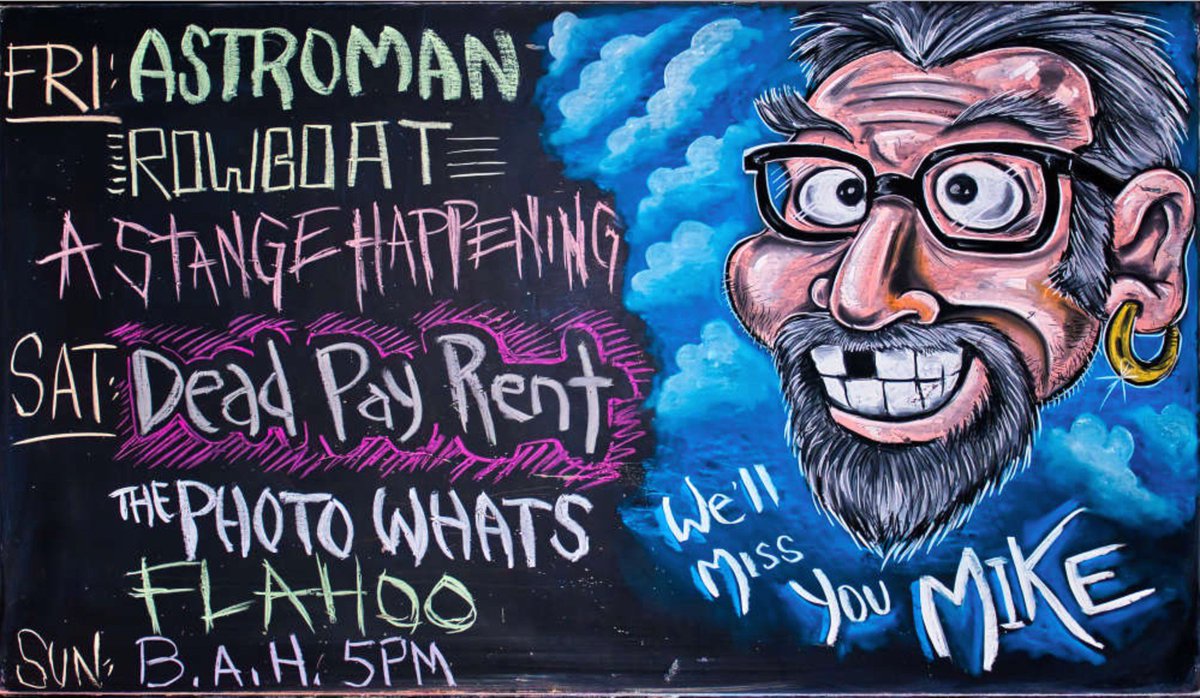 FRI: ASTROMAN
ROWBOAT
A STANGE HAPPENING
SAT: Dead Pay Rent
THE PHOTO WHATS
FLAHOO
SUN: B.A.H. 5PM
We'll
Miss
You MIKE